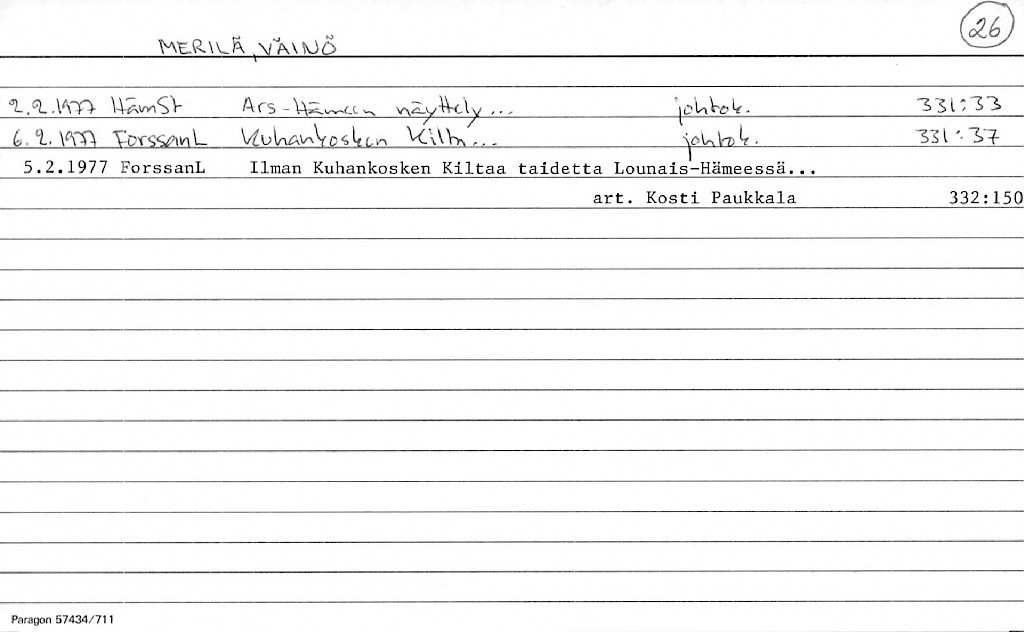 26
MERILÄ, VÄINÖ
2.2.1977 HämSt Ars-Hämeen näyttely... johtok. 331:33
6.2.1977 ForssanL Kuhankosken Kilta... johtok. 331:37
5.2.1977 ForssanL Ilman Kuhankosken Kiltaa taidetta Lounais-Hämeessä...
art. Kosti Paukkala 332:150
Paragon 57434/711